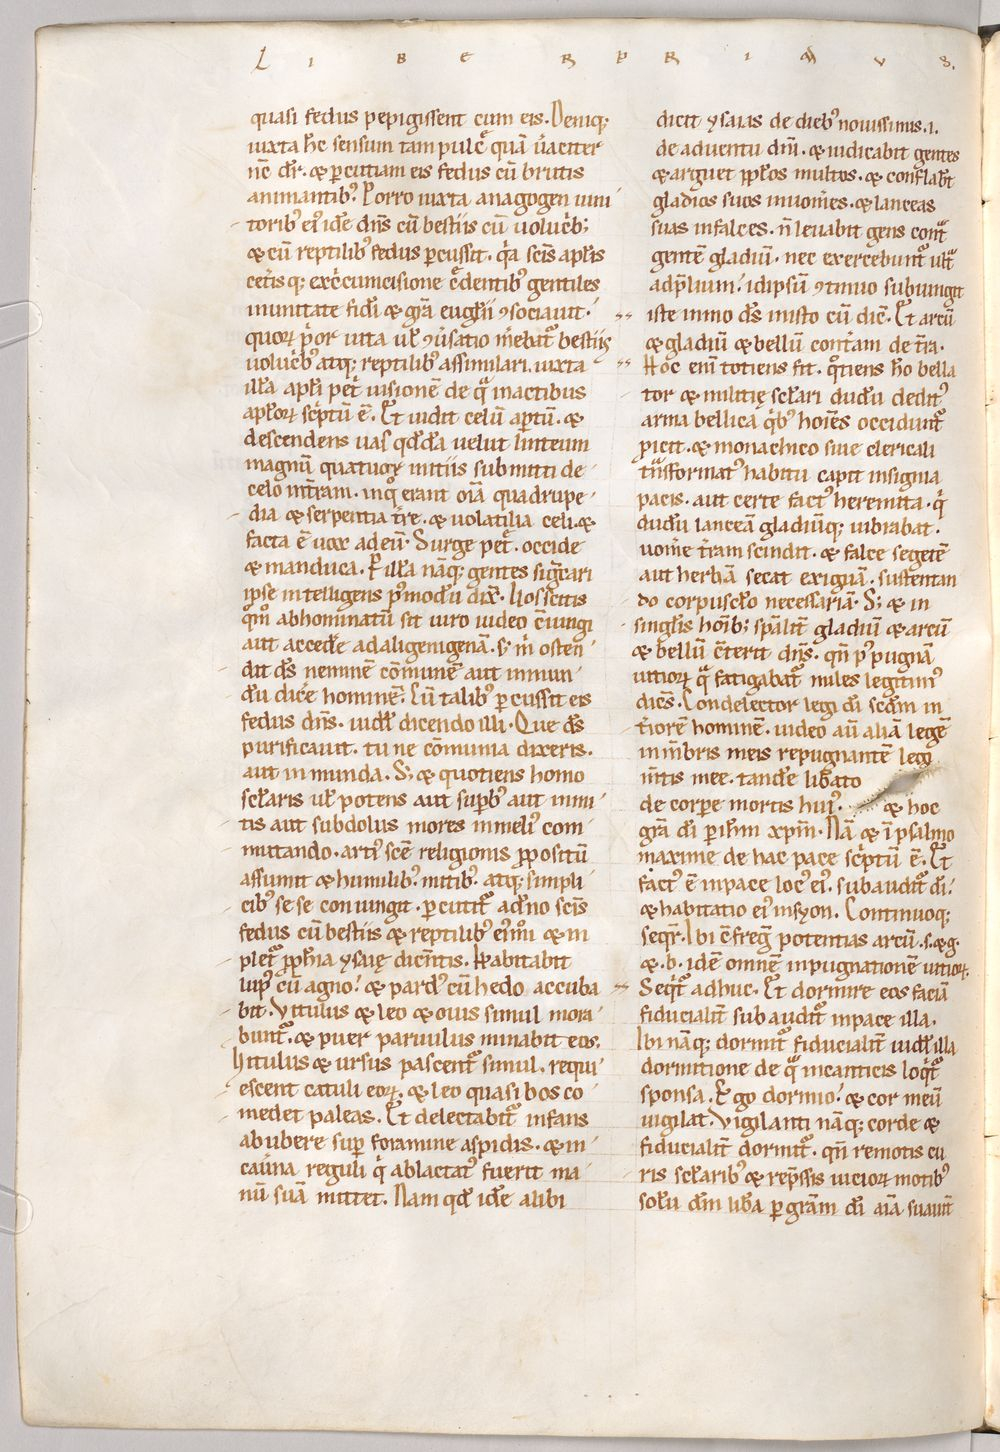 LIBER PRIMVS.
quasi fedus pepigissent cum eis. Deniq;
iuxta hc̄ sensum tam pulc̄ quā uiuaciter
nē dr̄. & ꝑcutiam eis fedus cū brutis
animantib᾽. Porro iuxta anagogen uiui
torib᾽ ei᾽ idē dn̄s cū bestiis cū uolucrib;
& cū reptilib᾽ fedus ꝑcussit. q̇a sc̄is apl̄is
cet̄is q; ex circumcisione c̄dentib᾽ gentiles
inunitate fidi & gr̄a eugl̄ii ꝯsociauit.
quoꝝ ṗor uita ul̄ ꝯuersatio m̄ebat᾽ bestiis
uolucrib᾽ atq; reptilib᾽ assimilari. iuxta
illā apl̄i pet̄ uisionē de q̄ inactibus
apl̄oꝝ sc̄ptū ē. Et uidit celū aꝑtū. &
descendens uas qd̄dā uelut linteum
magnū quatuor initiis submitti de
celo int̄ram. inq̊ erant oīa quadrupe
dia & serpentia tr̄e. & uolatilia celi. &
facta ē uox adeū. Surge pet̄. occide
& manduca. Ꝑ illa nāq; gentes sigficari
ipse intelligens p᾽modū dix̄. Uos scitis
qm̄ abhominatū sit uiro iudeo ꝯiungi
aut accedere adaligenigenā. s; m̄ osten
dit ds̄ neminē cōmunē aut inmun
dū dicere hominē. Cū talib᾽ ꝑcussit eis
fedus dn̄s. uidel̄ dicendo illi. Que ds̄
purificauit. tu ne cōmunia dixeris.
aut inmunda. S; & quotiens homo
scl̄aris ul̄ potens aut suꝑb᾽ aut inmi
tis aut subdolus mores inmeli᾽ com
mutando. arti᾽ scē religionis ꝓpositū
assumit & humilib᾽ mitib᾽. atq; simpli
cib᾽ se se coniungit. ꝑcutit᾽ adn̄o sc̄is
fedus cū bestiis & reptilib᾽ ei᾽mōi & in
plet᾽ ꝓph̄ia ysaię dicentis. Habitabit
lup᾽ cū agno. & pard᾽ cū hedo accuba
bit. Vitulus & leo & ouis simul mora
bunt᾽. & puer paruulus minabit eos.
Uitulus & ursus pascent᾽ simul. requi
escent catuli eoꝝ. & leo quasi bos co
medet paleas. Et delectabit᾽ infans
ab ubere suꝑ foramine aspidis. & in
cauerna reguli q̇ ablactat᾽ fuerit ma
nū suā mittet. Nam qd̄ idē alibi
dicit ysaias de dieb᾽ nouissimis. i.
de aduentu dn̄i. & iudicabit gentes
& arguet ppl̄os multos. & conflab̄t
gladios suos inuom̄es. & lanceas
suas infalces. n̄ leuabit gens cont᾽
gentē gladiū. nec exercebunt᾽ ult᾽
adp̄lium. idipsū ꝯtinuo subiungit
iste inmo ds̄ inisto cū dic̄. Et arcū
& gladiū & bellū cont̄am de tr̄a.
Hoc enī totiens fit. q̊tiens h̄o bella
tor & militię scl̄ari dudū dedit᾽
arma bellica q̇b᾽ hoīes occidunt᾽
ꝓicit. & monachico siue clericali
tn̄sformat᾽ habitu capit insignia
pacis. aut certe fact᾽ heremita. q̇
dudū lanceā gladiūq; uibrabat.
uomere tr̄am scindit. & falce segetē
aut herbā secat exiguā. sustentan
do corpusclo necessariā. S; & in
singlis hoīb; sp̄alit̄ gladiū & arcū
& bellū c̄terit dn̄s. qn̄ p᾽ pugnā
uitioꝝ q̄ fatigabat᾽ miles legitim᾽
dicēs. Condelector legi di scd̄m in
t̄iorē hominē. uideo aū aliā legē
in mbris meis repugnantē legi
m̄tis mee. tandē liberato
de corꝑe mortis hui᾽. & hoc
gr̄a di ꝑ ih̄m xp̄m. Nā & ī psalmo
maxime de hac pace sc̄ptū ē. Et
fact᾽ ē inpace loc᾽ ei᾽. subaudit᾽ di.
& habitatio ei᾽ insyon. Continuoq;
seqr̄. Ibi c̄freg̃ potentias arcū. s. & g.
& .b. idē omnē inpugnationē uitioꝝ.
Seqt᾽ adhuc. Et dormire eos faciā
fiducialit̄ subaudit᾽ inpace illa.
Ibi nāq; dormit᾽ fiducialit̄ uidel̄ illa
dormitione de q̄ incanticis loqt᾽
sponsa. Ego dormio. & cor meū
uigilat. Vigilanti nāq; corde &
fiducialit̄ dormit᾽. qn̄ remotis cu
ris scl̄arib᾽ & rep̄ssis uicioꝝ motib᾽
solū dm̄ libera ꝑ grām di aīa suauit̄